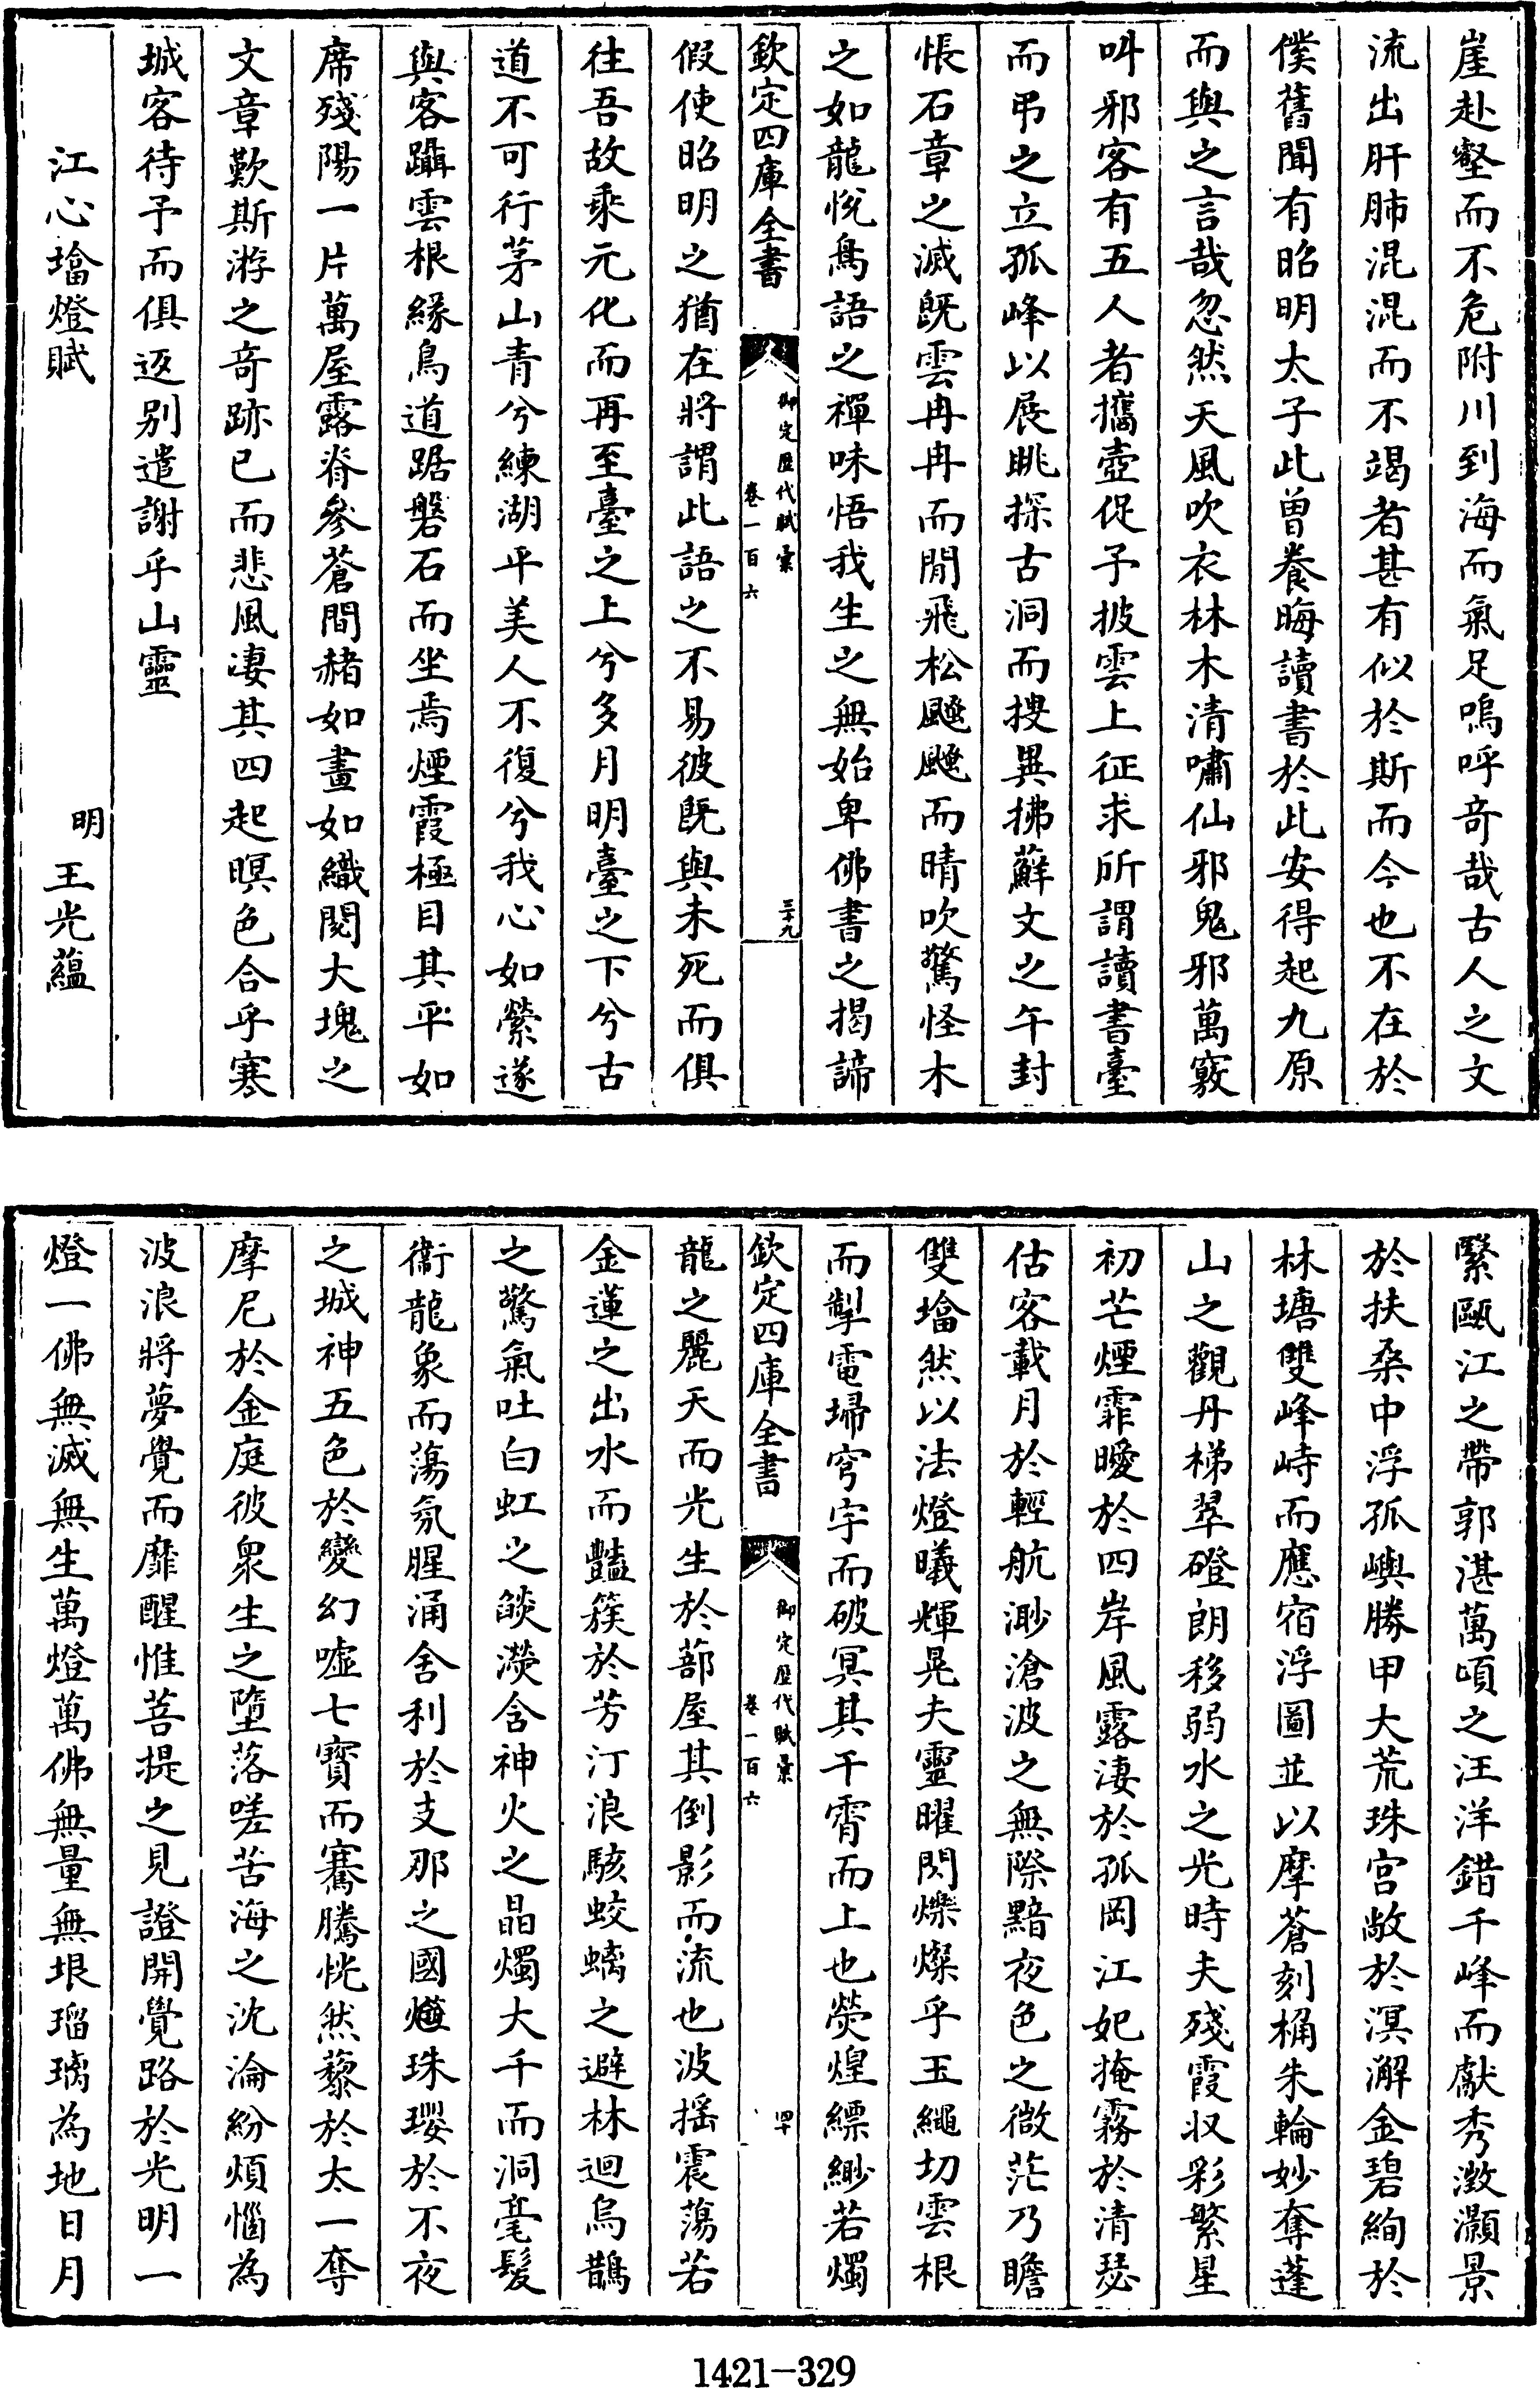 崖赴壑而不危附川到海而氣足嗚呼奇哉古人之文
流出肝肺混混而不竭者甚有似於斯而今也不在於
僕舊聞有昭明太子此曾養晦讀書於此安得起九原
而與之言哉忽然天風吹衣林木清嘯仙邪鬼邪萬竅
叫邪客有五人者攜壺促予披雲上征求所謂讀書臺
而弔之立孤峰以展眺探古洞而搜異拂蘚文之午封
悵石章之滅既雲冉冉而閒飛松颼颼而晴吹驚怪木
之如龍悅鳥語之禪味悟我生之無始卑佛書之揭諦
欽定四庫全書 御定歷代賦彙 卷一百六 三十九
假使昭明之猶在將謂此語之不易彼既與未死而俱
往吾故乘元化而再至臺之上兮多月明臺之下兮古
道不可行茅山青兮練湖平美人不復兮我心如縈遂
與客躡雲根緣鳥道踞磐石而坐焉煙霞極目其平如
席殘陽一片萬屋露脊參蒼間赭如畫如織閱大塊之
文章歎斯游之奇跡已而悲風淒其四起暝色合乎寒
城客待予而俱返別遣謝乎山靈
江心墖燈賦 明 王光蘊
緊甌江之帶郭湛萬頃之汪洋錯千峰而獻秀澂灝景
於扶桑中浮孤嶼勝甲大荒珠宮敞於溟澥金碧絢於
林塘雙峰峙而應宿浮圖並以摩蒼刻桷朱輪妙奪蓬
山之觀丹梯翠磴朗移弱水之光時夫殘霞收彩繁星
初芒煙霏曖於四岸風露淒於孤岡江妃掩霧於清瑟
估客載月於輕航渺滄波之無際黯夜色之微茫乃瞻
雙墖然以法燈曦輝晃夫靈曜閃爍燦乎玉繩切雲根
而掣電埽穹宇而破冥其干霄而上也熒煌縹緲若燭
欽定四庫全書 御定歷代賦彙 卷一百六 四十
龍之麗天而光生於蔀屋其倒影而流也波搖震蕩若
金蓮之出水而豔簇於芳汀浪駭蛟螭之避林迴烏鵲
之驚氣吐白虹之燄瀠含神火之晶燭大千而洞毫髮
衞龍象而蕩氛腥涌舍利於支那之國爀珠瓔於不夜
之城神五色於變幻噓七寶而騫騰恍然藜於太一奪
摩尼於金庭彼衆生之墮落嗟苦海之沈淪紛煩惱為
波浪將夢覺而靡醒惟菩提之見證開覺路於光明一
燈一佛無滅無生萬燈萬佛無量無垠瑠璃為地日月
1421-329